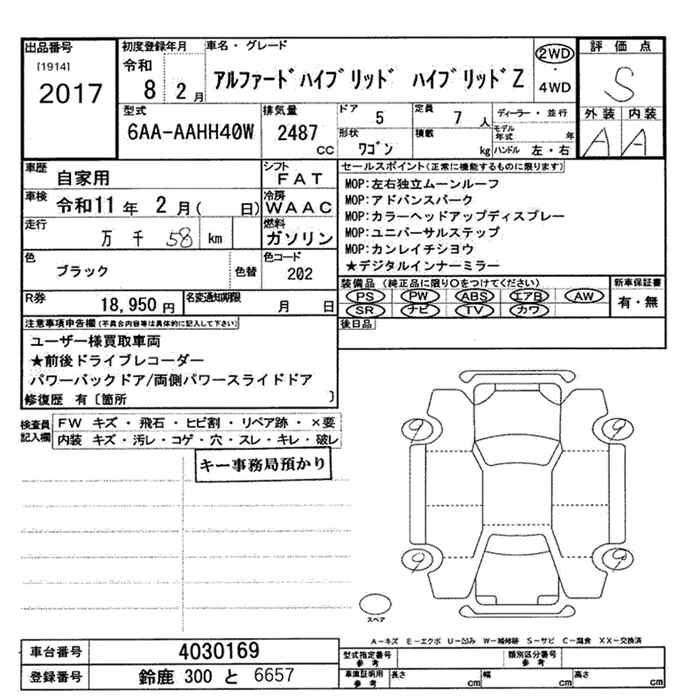 出品番号 初度登録年月 車名・グレード 評価点
[1914] 令和 アルファードハイブリッド ハイブリッドZ 2WD ・ 4WD S
2017 8 2月 外装 内装
A A
型式 排気量 ドア 5 定員 7人 ディーラー・並行
6AA-AAHH40W 2487 CC 形状 ワゴン 積載 kg モデル年式 年
ハンドル 左・右
車歴 自家用 シフト FAT セールスポイント(正常に機能するものに限ります)
車検 令和11年 2月( 日) 冷房 WAAC MOP:左右独立ムーンルーフ
MOP:アドバンスパーク
走行 万 千 58 km 燃料 ガソリン MOP:カラーヘッドアップディスプレー
MOP:ユニバーサルステップ
色 ブラック 色替 色コード 202 MOP:カンレイチシヨウ
★デジタルインナーミラー
R券 18,950円 名変通知期限 月 日 装備品(純正品に限り○をつけてください) 新車保証書
PS PW ABS エアB AW 有・無
SR ナビ TV カワ
注意事項申告欄(不具合内容等は具体的に記入して下さい) 後日品
ユーザー様買取車両
★前後ドライブレコーダー
パワーバックドア/両側パワースライドドア
修復歴 有〔箇所 〕
検査員記入欄 FW キズ・飛石・ヒビ割・リペア跡・×要
内装 キズ・汚レ・コゲ・穴・スレ・キレ・破レ
キー事務局預かり
9 9
9 9
スペア
A-キズ E-エクボ U-凹み W-補修跡 S-サビ C-腐食 XX-交換済
車台番号 4030169 型式指定番号 参考 類別区分番号 参考
登録番号 鈴鹿 300 と 6657 車庫証明用 参考 長さ cm 幅 cm 高さ cm